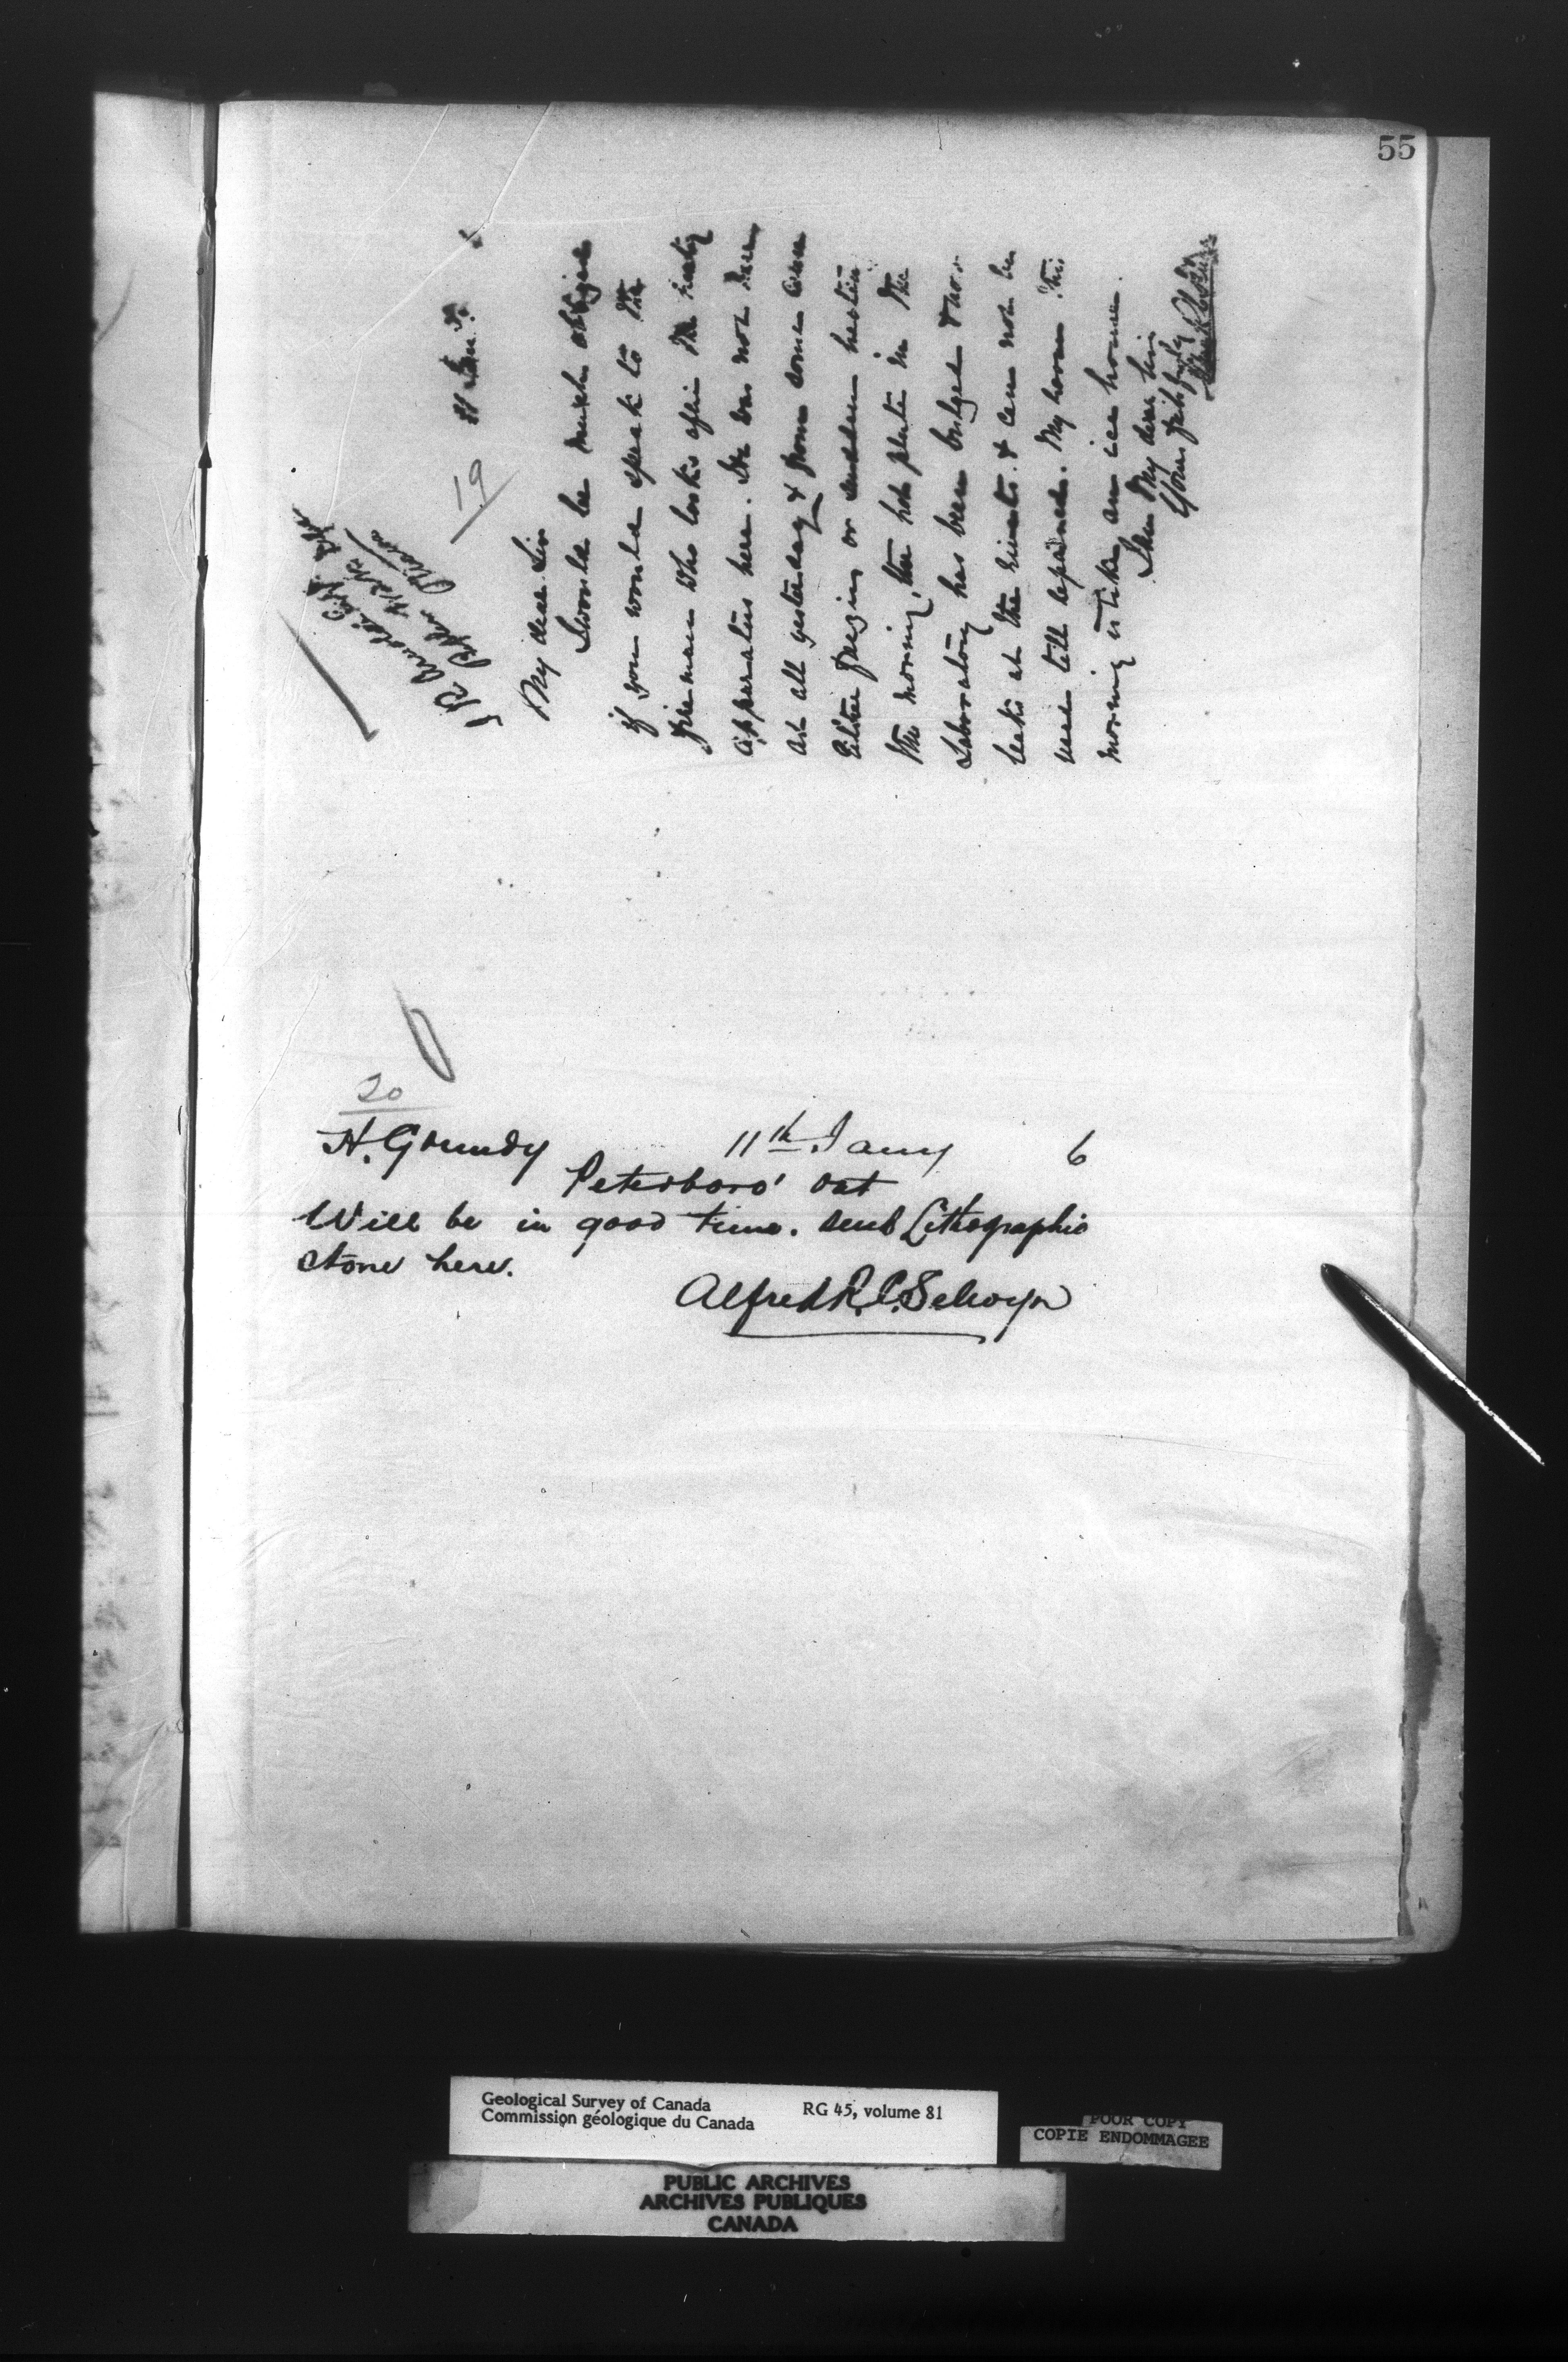 55
19
11 Jan. 6
J R Arnoldi Esq.
Public Works Dept
Ottawa
My dear Sir
I would be much obliged
if you would speak to the
fireman who looks after the heating
apparatus here. He was not here
at all yesterday & from some cause
Either freezing or sudden heating
the morning, the hot plate in the
Laboratory has been bulged & now
leaks at the rivets. & can not be
used till repaired. My room this
morning is like an ice house.
I am My dear Sir
Yours faithfully
20
H. Grundy 11th Jany 6
Peterboro' Ont
Will be in good time. Send Lithographic
stone here.
Alfred R. C. Selwyn
Geological Survey of Canada RG 45, volume 81
Commission géologique du Canada
POOR COPY
COPIE ENDOMMAGEE
PUBLIC ARCHIVES
ARCHIVES PUBLIQUES
CANADA